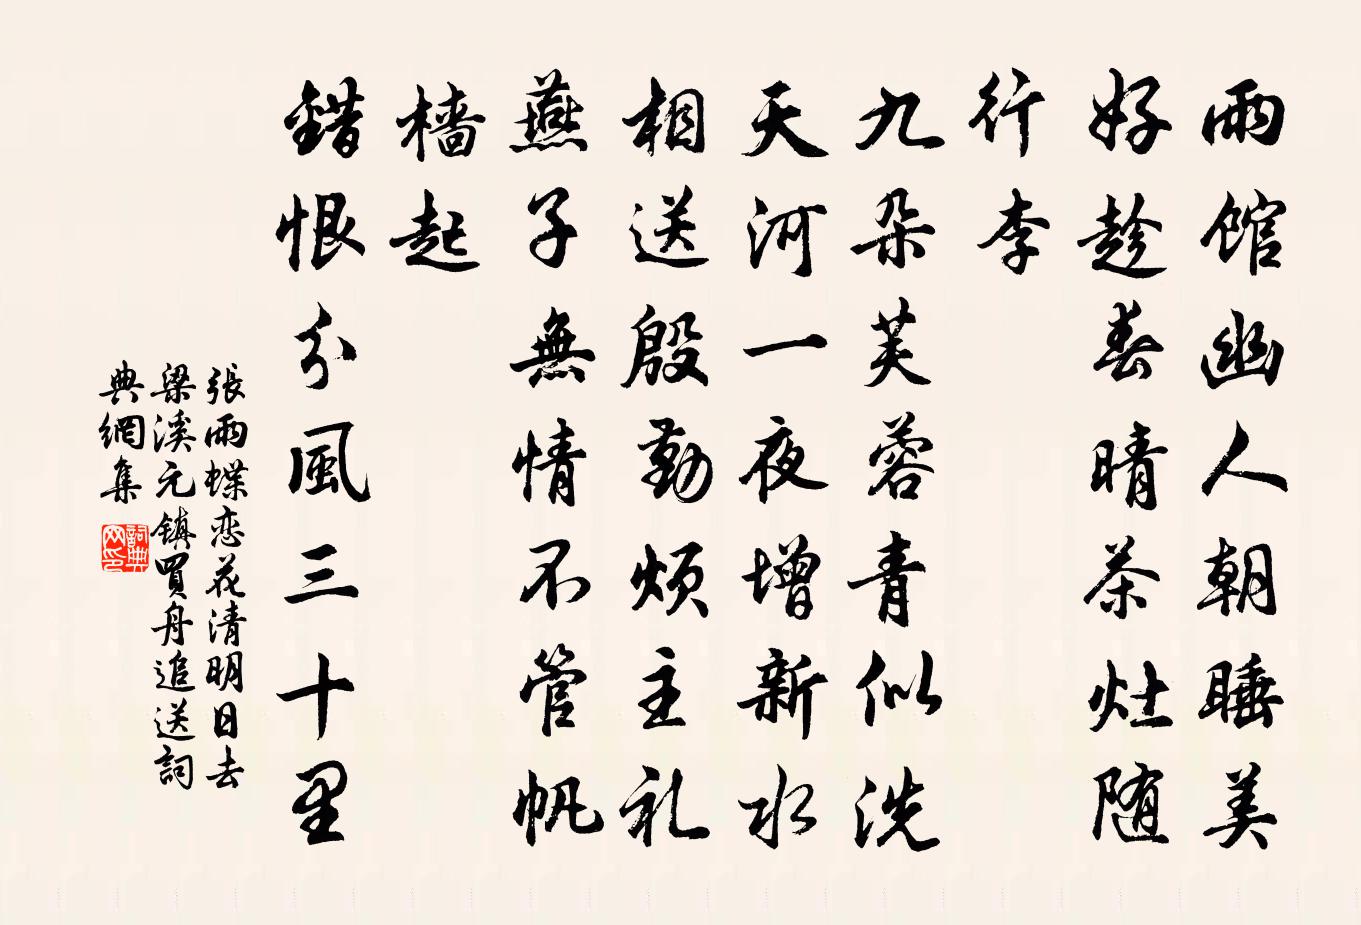 雨館幽人朝睡美
好趁春晴茶灶随
行李
九朵芙蓉青似洗
天河一夜增新水
相送殷勤烦主礼
燕子無情不管帆
檣起
錯恨分風三十里
張雨蝶恋花清明日去
梁溪元镇買舟追送詞
典網集
詞典
网印